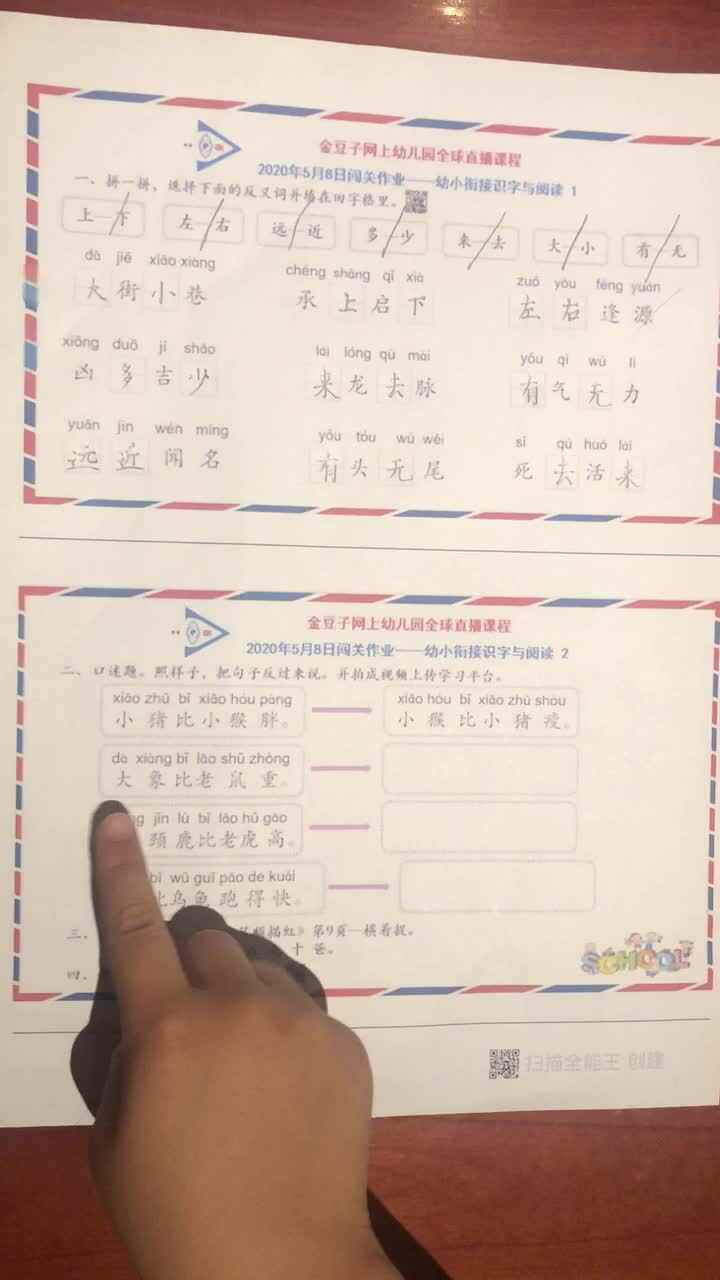 金豆子网上幼儿园全球直播课程
2020年5月8日闯关作业——幼小衔接识字与阅读 1
一、拼一拼，选择下面的反义词并填在田字格里。
上—下 左—右 远—近 多—少 来—去 大—小 有—无
dà jiē xiǎo xiàng chéng shàng qǐ xià zuǒ yòu féng yuán
大街小巷 承上启下 左右逢源
xiōng duō jí shǎo lái lóng qù mài yǒu qì wú lì
凶多吉少 来龙去脉 有气无力
yuǎn jìn wén míng yǒu tóu wú wěi sǐ qù huó lái
远近闻名 有头无尾 死去活来
金豆子网上幼儿园全球直播课程
2020年5月8日闯关作业——幼小衔接识字与阅读 2
二、口述题。照样子，把句子反过来说。并拍成视频上传学习平台。
xiǎo zhū bǐ xiǎo hóu pàng xiǎo hóu bǐ xiǎo zhū shòu
小猪比小猴胖。 小猴比小猪瘦。
dà xiàng bǐ lǎo shǔ zhòng
大象比老鼠重。
jǐng lù bǐ lǎo hǔ gāo
颈鹿比老虎高。
bǐ wū guī pǎo de kuài
比乌龟跑得快。
三、 描红》第9页—横着捉。
四、 十爸。
SCHOOL
扫描全能王 创建